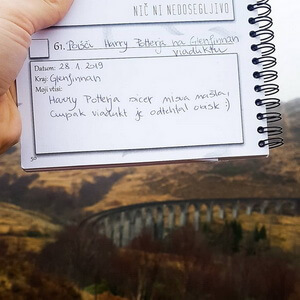 NIČ NI NEDOSEGLJIVO
61. Poišči Harry Potterja na Glenfinnan
viaduktu
Datum: 28. 1. 2019
Kraj: Glenfinnan
Moji vtisi:
Harry Potterja sicer nisva našla,
ampak viadukt je odtehtal obisk :)
50